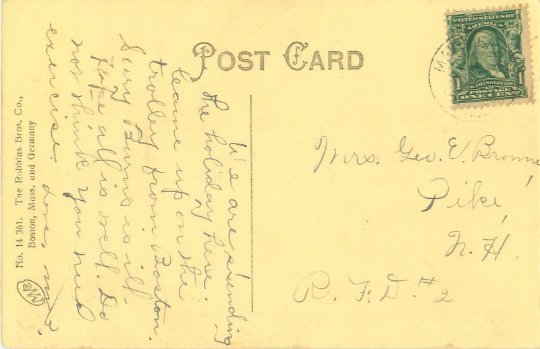 POST CARD
UNITED STATES OF
1 1
POSTAGE
ONE CENT
We are spending
the holiday here.
Came up on the
trolley from Boston.
Burns is ill
Hope all is well. Do
not think you need
exercise, done
Mrs. Geo. E. Browne
Pike,
N. H.
R. F. D. #2
No. 14 361. The Robbins Bros. Co.,
Boston, Mass. and Germany